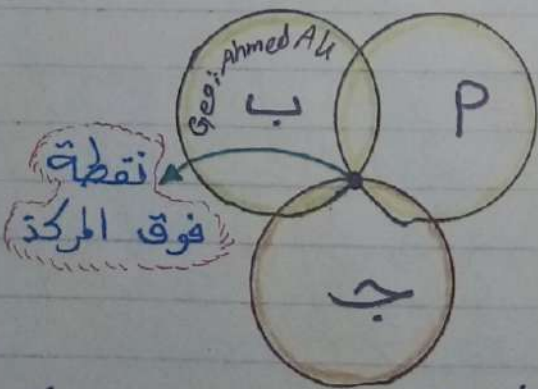 Geo: Ahmed Ali
ب
م
نقطة
فوق المركز
جـ